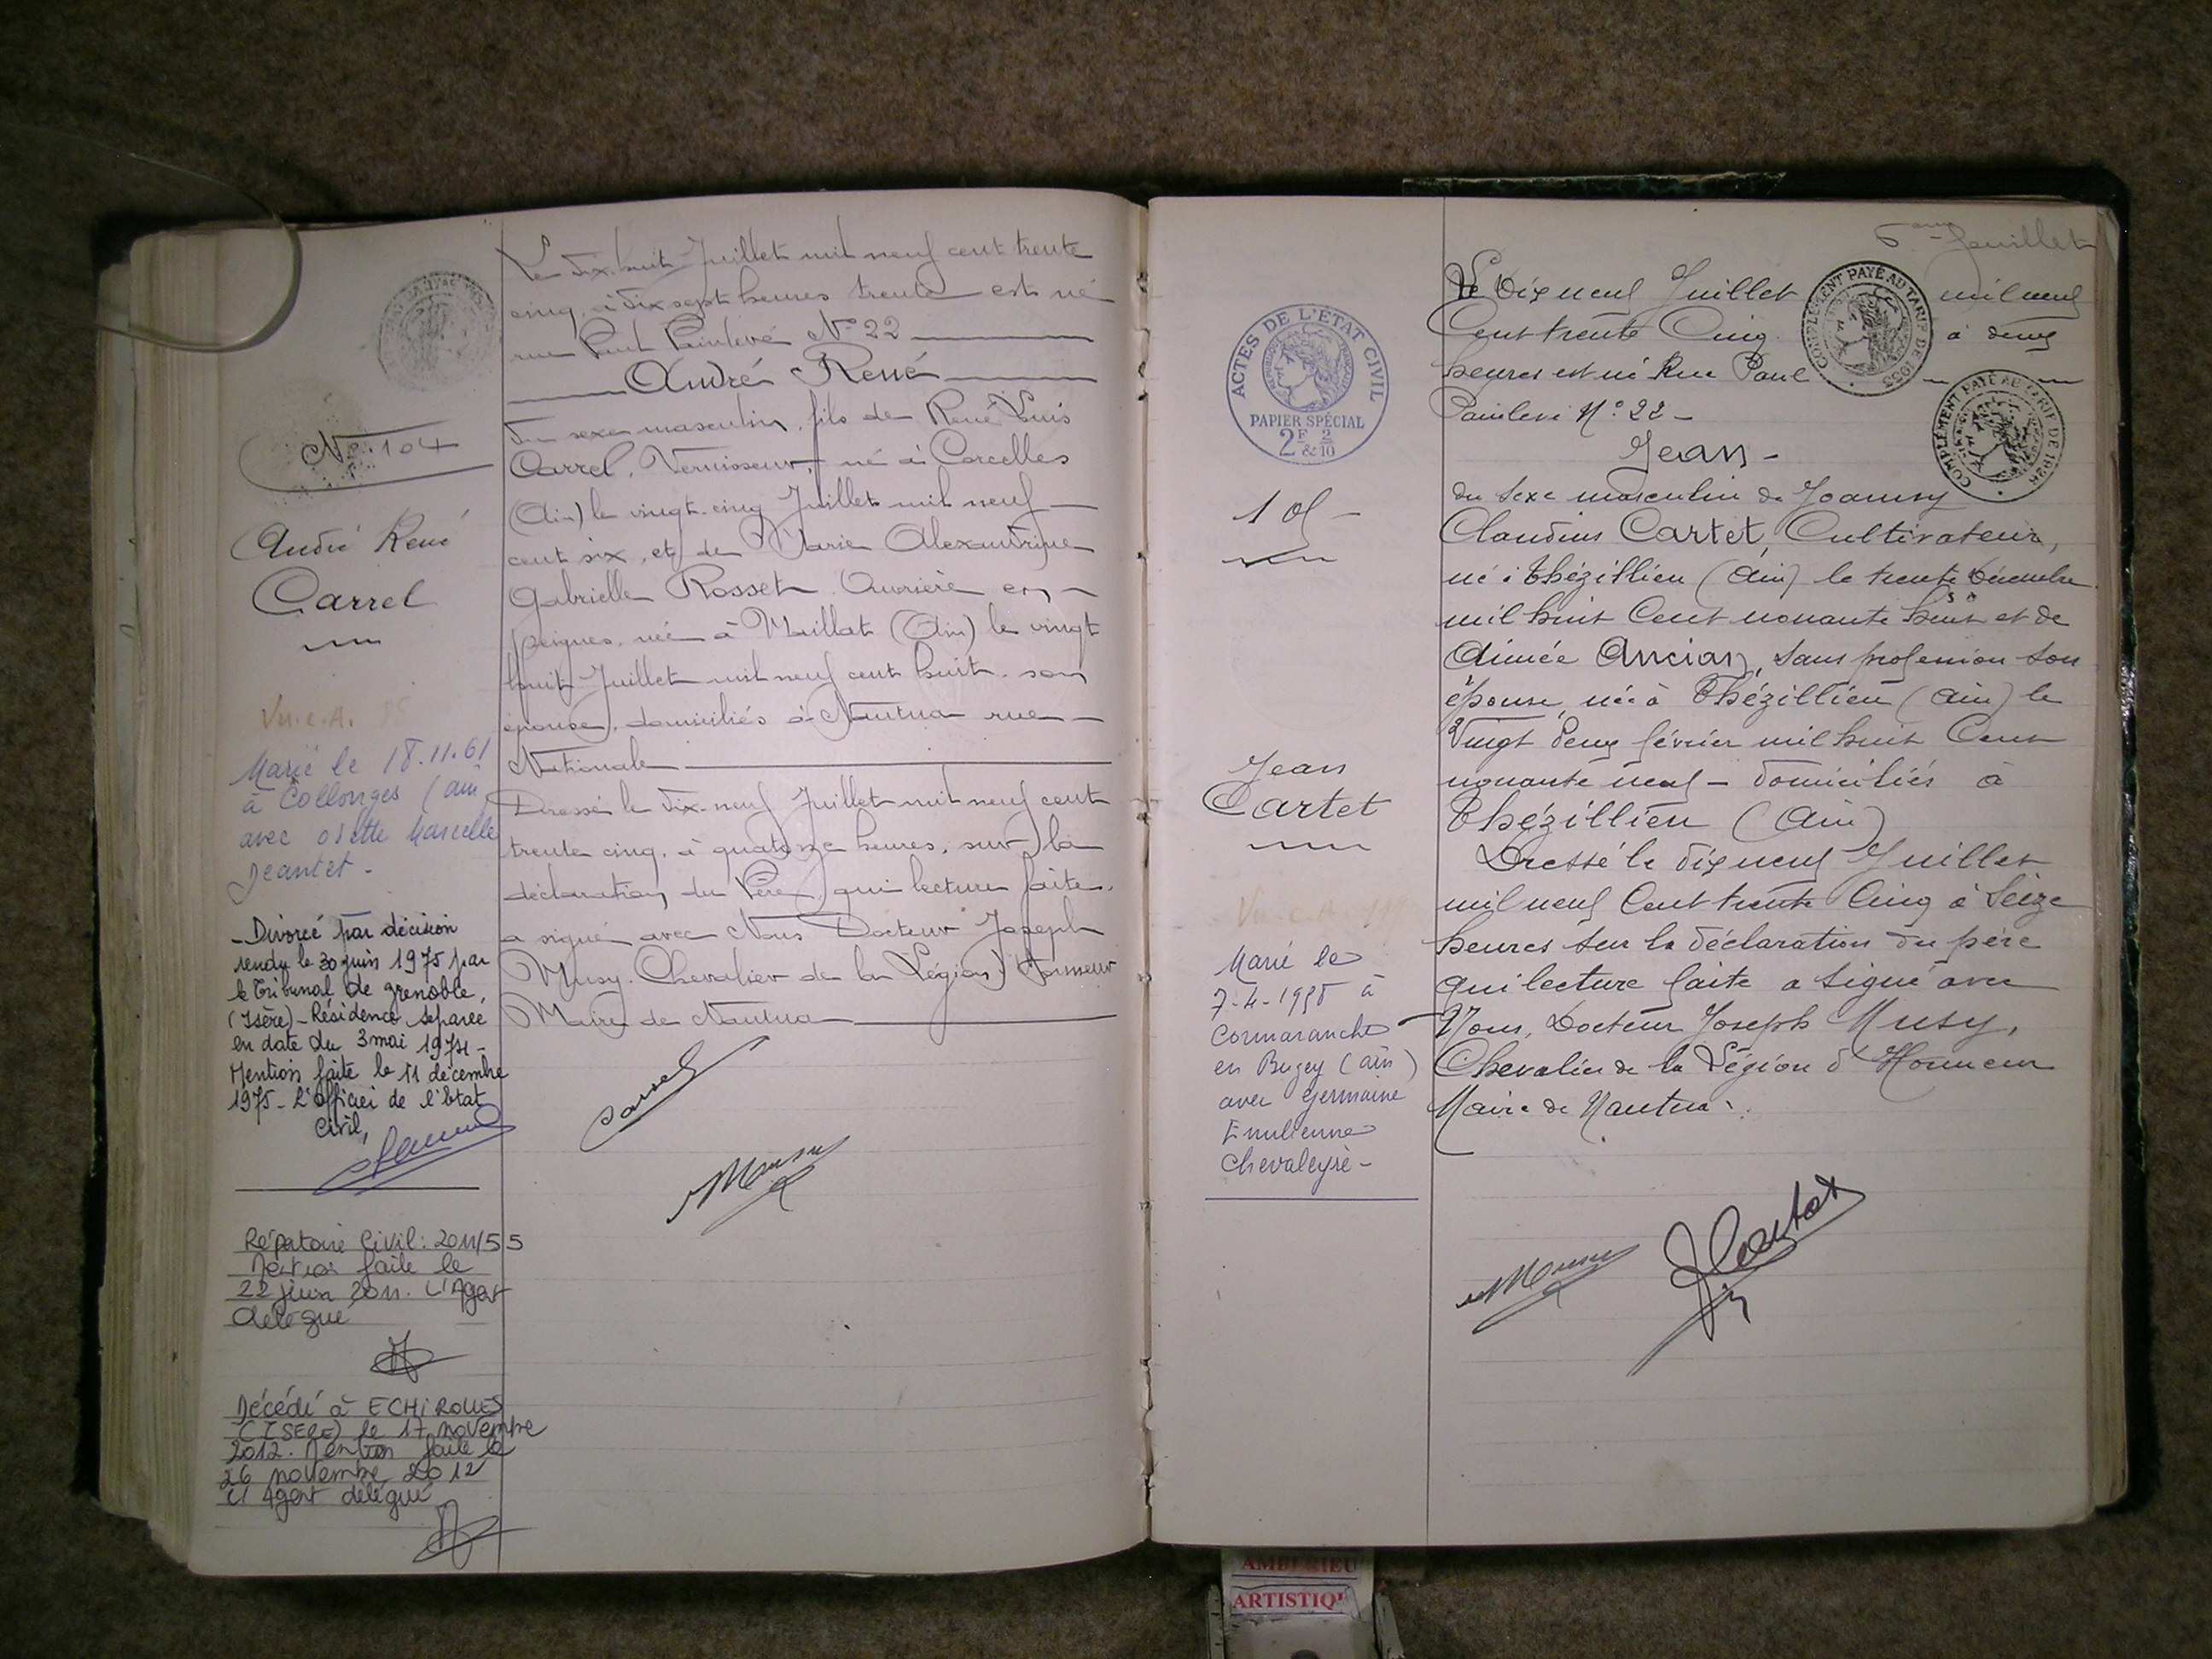 N° 104
André René
Carrel
Vu.c.A.
Marié le 18.11.61
à Collonges (ain
avec odette Marcelle
Jeantet -
- Divorcé par décision
rendu le 30 juin 1975 par
le Tribunal de grenoble,
(Isère) - Résidence séparée
en date du 3 mai 1974 -
Mention faite le 11 décembre
1975 - L'officier de l'état
civil,
Répertoire Civil : 2011/55
Mention faite le
22 juin 2011. L'Agent
délégué
Décédé à ECHIROLLES
(ISERE) le 17 novembre
2012. Mention faite le
26 novembre 2012
L'Agent délégué
Le dix-huit Juillet mil neuf cent trente
cinq, à dix sept heures trente est né
rue Paul Painlevé N° 22
André René
du sexe masculin, fils de René Louis
Carrel, Vernisseur, né à Corcelles
(Ain) le vingt-cinq Juillet mil neuf
cent six, et de Marie Alexandrine
Gabrielle Rosset Ouvrière en
peignes, née à Maillat (Ain) le vingt
huit Juillet mil neuf cent huit, son
épouse, domiciliés à Nantua rue
Nationale
Dressé le dix-neuf Juillet mil neuf cent
trente cinq, à quatorze heures, sur la
déclaration du Père, qui lecture faite,
a signé avec Nous Docteur Joseph
Musy, Chevalier de la Légion d'Honneur
Maire de Nantua
Carrel
Musy
ACTES DE L'ÉTAT CIVIL
RÉPUBLIQUE FRANÇAISE
PAPIER SPÉCIAL
2F & 2/10
105 -
Jean
Cartet
Vu.c.A.
Marié le
7-4-1958 à
Cormaranche
en Bugey (ain)
avec Germaine
Emilienne
Chevaleyre -
6eme feuillet
Le Dix neuf Juillet mil neuf
Cent trente Cinq à deux
heures est né Rue Paul
Painlevé N° 22 -
COMPLÉMENT PAYÉ AU TARIF DE 1935
COMPLÉMENT PAYÉ AU TARIF DE
Jean -
du sexe masculin de Joanny
Claudius Cartet, Cultivateur,
né à Thézillieu (Ain) le trente Décembre
mil huit Cent nonante huit et de
Aimée Ancian, sans profession son
épouse, née à Thézillieu (Ain) le
Vingt deux février mil huit Cent
nonante neuf - domiciliés à
Thézillieu (Ain)
Dressé le dix neuf Juillet
mil neuf Cent trente Cinq à Seize
heures sur la déclaration du père
qui lecture faite a signé avec
Nous, Docteur Joseph Musy,
Chevalier de la Légion d'Honneur
Maire de Nantua.
Musy
J Cartet
AMBERIEU
ARTISTIQ